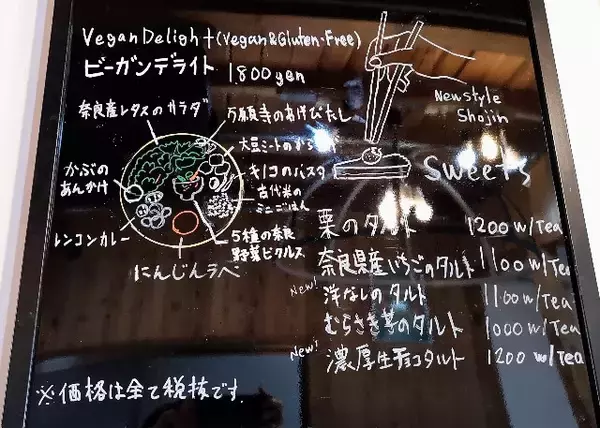 Vegan Delight (Vegan & Gluten-Free)
ビーガンデライト 1800yen
奈良産レタスのサラダ
万願寺のあげびたし
大豆ミートのから
かぶの
あんかけ
キノコのパスタ
古代米の
ミニごはん
レンコンカレー
5種の奈良
野菜ピクルス
にんじんラペ
New style
Shojin
Sweets
栗のタルト 1200 w/Tea
奈良県産いちごのタルト 1100 w/Tea
New! 洋なしのタルト 1100 w/Tea
むらさき芋のタルト 1000 w/Tea
New! 濃厚生チョコタルト 1200 w/Tea
※価格は全て税抜です.